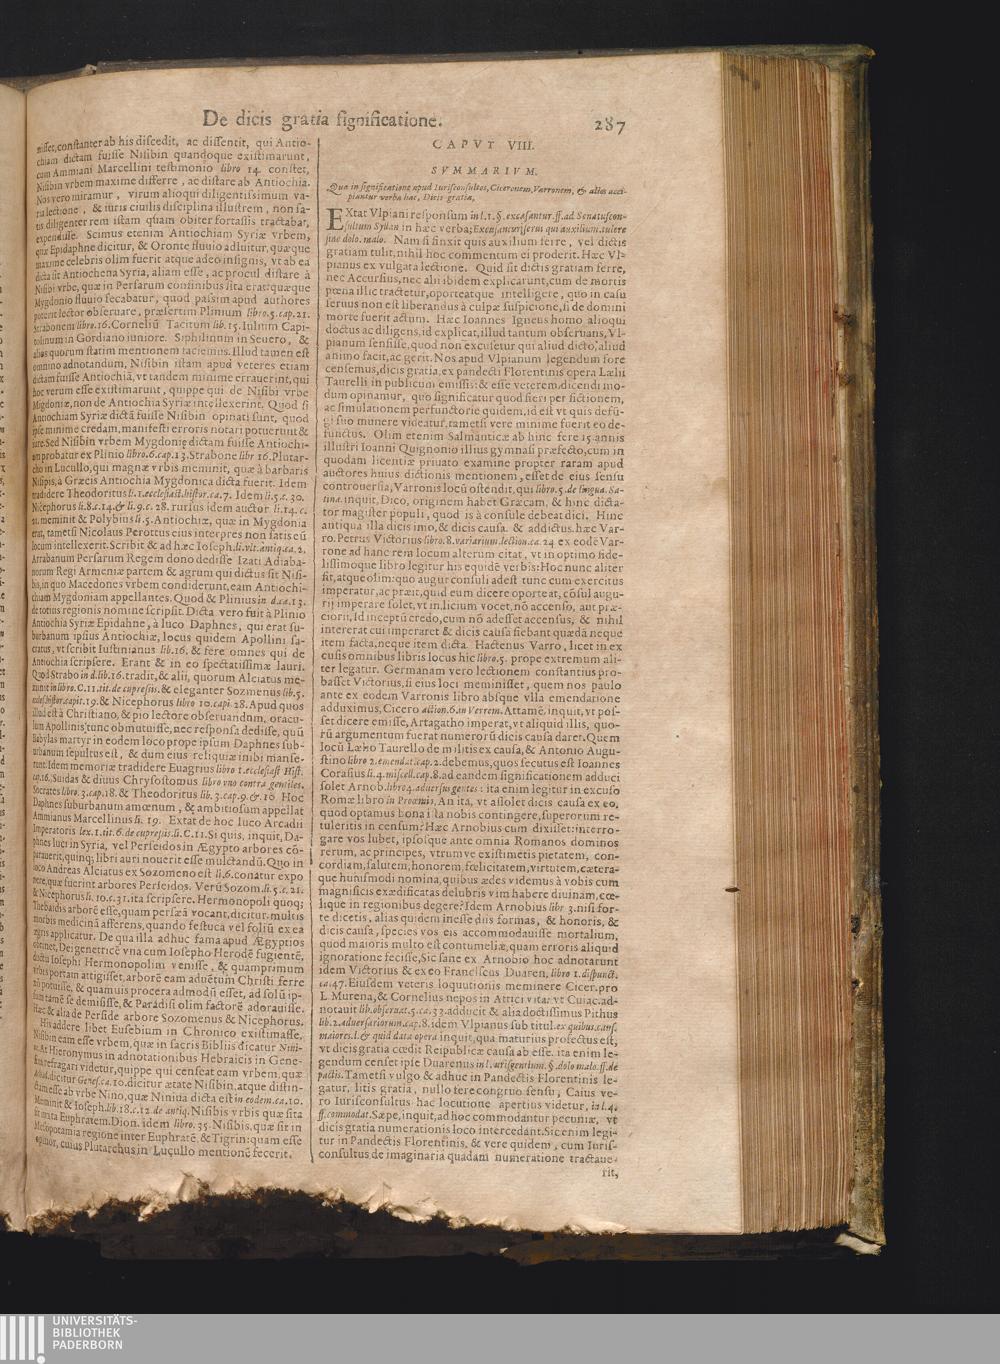 De dicis gratia significatione.
287
nisset, constanter ab his discedit, ac dissentit, qui Antio-
chiam dictam fuisse Nisibin quandoque existimarunt,
cum Ammiani Marcellini testimonio libro 14. constet,
Nisibin vrbem maxime differre, ac distare ab Antiochia.
Nos vero miramur, virum alioqui diligentissimum va-
ria lectione, & iuris ciuilis disciplina illustrem, non sa-
tis diligenter rem istam quam obiter fortassis tractabat,
expendisse. Scimus etenim Antiochiam Syriæ vrbem,
quæ Epidaphne dicitur, & Oronte fluuio adluitur, quæque
maxime celebris olim fuerit atque adeo insignis, vt ab ea
dicta sit Antiochena Syria, aliam esse, ac procul distare à
Nisibi vrbe, quæ in Persarum confinibus sita erat: quæque
Mygdonio fluuio secabatur, quod passim apud authores
poterit lector obseruare, præsertim Plinium libro.5.cap.21.
Strabonem libro.16. Corneliũ Tacitum lib.15. Iulium Capi-
tolinum in Gordiano iuniore. Siphilinum in Seuero, &
alios quorum statim mentionem faciemus. Illud tamen est
omnino adnotandum, Nisibin istam apud veteres etiam
dictam fuisse Antiochiã, vt tandem minime errauerint, qui
hoc verum esse existimarunt, quippe qui de Nisibi vrbe
Migdoniæ, non de Antiochia Syriæ intellexerint. Quod si
Antiochiam Syriæ dictã fuisse Nisibin opinati sunt, quod
ipse minime credam, manifesti erroris notari potuerunt &
iure. Sed Nisibin vrbem Mygdonie dictam fuisse Antiochi-
am probatur ex Plinio libro.6.cap.13. Strabone libr 16. Plutar-
cho in Lucullo, qui magnæ vrbis meminit, quæ à barbaris
Nisipis, à Græcis Antiochia Mygdonica dicta fuerit. Idem
tradidere Theodoritus li.1.ecclesiast.histor.ca.7. Idem li.5.c.30.
Nicephorus li.8.c.14.& li.9.c.28. rursus idem auctor li.14.c.
21. meminit & Polybius li.5. Antiochiæ, quæ in Mygdonia
erat, tametsi Nicolaus Perottus eius interpres non satis eũ
locum intellexerit. Scribit & ad hæc Ioseph. li.vlt.antiq.ca.2.
Arrabanum Persarum Regem dono dedisse Izati Adiaba-
norum Regi Armeniæ partem & agrum qui dictus sit Nisi-
bis, in quo Macedones vrbem condiderunt, eam Antiochi-
chiam Mygdoniam appellantes. Quod & Plinius in d.ca.13.
de totius regionis nomine scripsit. Dicta vero fuit à Plinio
Antiochia Syriæ Epidahne, à luco Daphnes, qui erat su-
burbanum ipsius Antiochiæ, locus quidem Apollini sa-
cratus, vt scribit Iustinianus lib.16. & fere omnes qui de
Antiochia scripsere. Erant & in eo spectatissimæ lauri.
Quod Strabo in d.lib.16. tradit, & alij, quorum Alciatus me-
minit in libro.C.11.tit.de cupressis. & eleganter Sozmenus lib.5.
eccles.histor.capit.19. & Nicephorus libro 10.capi.28. Apud quos
illud est à Christiano, & pio lectore obseruandum, oracu-
lum Apollinis tunc obmutuisse, nec responsa dedisse, quũ
Babylas martyr in eodem loco prope ipsum Daphnes sub-
urbanum sepultus est, & dum eius reliquiæ inibi manse-
runt. Idem memoriæ tradidere Euagrius libro 1.ecclesiast Hist.
cap.16. Suidas & diuus Chrysostomus libro vno contra gentiles.
Socrates libro.3.cap.18. & Theodoritus lib.3.cap.9.&.10 Hoc
Daphnes suburbanum amœnum, & ambitiosum appellat
Ammianus Marcellinus li.19. Extat de hoc luco Arcadii
Imperatoris lex.1.tit.6.de cupressis.li.C.11. Si quis, inquit, Da-
phnes luci in Syria, vel Perseidos in Ægypto arbores cõ-
parauerit, quinq; libri auri nouerit esse mulctandũ. Quo in
loco Andreas Alciatus ex Sozomeno est li.6. conatur expo
nere, quæ fuerint arbores Perseidos. Verũ Sozom.li.5.c.21.
& Nicephorus li.10.c.31. ita scripsere. Hermonopoli quoq;
Thebaidis arborē esse, quam persæã vocant, dicitur. multis
morbis medicinã afferens, quando festuca vel foliũ ex ea
ægris applicatur. De qua illa adhuc fama apud Ægyptios
obtinet, Dei genetricē vna cum Iosepho Herodē fugientē,
ductu Iosephi Hermonopolim venisse, & quamprimum
vrbis portam attigisset, arborē eam aduētum Christi ferre
nõ potuisse, & quamuis procera admodũ esset, ad solũ ip-
sum tamē se demisisse, & Paradisi olim factorē adorauisse.
Hæc & alia de Perside arbore Sozomenus & Nicephorus.
His addere libet Eusebium in Chronico existimasse,
Nisibin eam esse vrbem, quæ in sacris Bibliis dicatur Nini-
ue. At Hieronymus in adnotationibus Hebraicis in Gene-
sim refragari videtur, quippe qui censeat eam vrbem, quæ
dicitur Genes.ca.10. dicitur ætate Nisibin, atque distin-
ctam esse ab vrbe Nino, quæ Niniua dicta est in eodem.ca.10.
Meminit & Ioseph.lib.18.c.12.de antiq. Nisibis vrbis quæ sita
sit iuxta Euphratem. Dion. idem libro.35. Nisibis, quæ sit in
Mesopotamia regione inter Euphratē, & Tigrin: quam esse
opinor, cuius Plutarchus in Lucullo mentionē fecerit.
CAPVT VIII.
SVMMARIVM.
Quæ in significatione apud Iurisconsultos, Ciceronem, Varronem, & alios acci-
piantur verba hæc, Dicis gratia,
EXtat Vlpiani responsum in l.1.§.excusantur.ff.ad Senatuscon-
sultum Syllan in hæc verba; Excusantur serui qui auxilium tulere
sine dolo malo. Nam si finxit quis auxilium ferre, vel dictis
gratiam tulit, nihil hoc commentum ei proderit. Hæc Vl-
pianus ex vulgata lectione. Quid sit dictis gratiam ferre,
nec Accursius, nec alii ibidem explicarunt, cum de mortis
pœna illic tractetur, oporteatque intelligere, quo in casu
seruus non est liberandus à culpæ suspicione, si de domini
morte fuerit actum. Hæc Ioannes Igneus homo alioqui
doctus ac diligens, id explicat, illud tantum obseruans, Vl-
pianum sensisse, quod non excusetur qui aliud dicto, aliud
animo facit, ac gerit. Nos apud Vlpianum legendum fore
censemus, dicis gratia, ex pandecti Florentinis opera Lælii
Taurelli in publicum emissis: & esse veterem dicendi mo-
dum opinamur, quo significatur quod fieri per fictionem,
ac simulationem perfunctorie quidem, id est vt quis defũ-
gi suo munere videatur, tametsi vere minime fuerit eo de-
functus. Olim etenim Salmanticæ ab hinc fere 15 annis
illustri Ioanni Quignonio illius gymnasi præfecto, cum in
quodam licentiæ priuato examine propter raram apud
auctores huius dictionis mentionem, esset de eius sensu
controuersia, Varronis locũ ostendit, qui libro.5.de lingua.La-
tina. inquit, Dico, originem habet Græcam, & hinc dicta-
tor magister populi, quod is à consule debeat dici. Hinc
antiqua illa dicis imo, & dicis causa. & addictus. hæc Var-
ro. Petrus Victorius libro.8.variarum.lection.ca.24 ex eodē Var-
rone ad hanc rem locum alterum citat, vt in optimo fide-
lissimoque libro legitur his equidē verbis: Hoc nunc aliter
fit, atque olim: quo augur consuli adest tunc cum exercitus
imperatur, ac præit, quid eum dicere oporteat, cõsul augu-
rij imperare solet, vt in.licium vocet, nõ accenso, aut præ-
ciorit, Id inceptũ credo, cum nõ adesset accensus, & nihil
intererat cui imperaret & dicis causa fiebant quædã neque
item facta, neque item dicta. Hactenus Varro, licet in ex
cusis omnibus libris locus hic libro.5. prope extremum ali-
ter legatur. Germanam vero lectionem constantius pro-
basset Victorius, si eius loci meminisset, quem nos paulo
ante ex eodem Varronis libro absque vlla emendatione
adduximus, Cicero action.6.in Verrem. Attamē, inquit, vt pos-
set dicere emisse, Artagatho imperat, vt aliquid illis, quo-
rũ argumentum fuerat numerorũ dicis causa daret. Quem
locũ Lælio Taurello de militis ex causa, & Antonio Augu-
stino libro 2.emendat.cap.2. debemus, quos secutus est Ioannes
Corasius li.4.miscell.cap.8. ad eandem significationem adduci
solet Arnob. libro 4.aduersus gentes: ita enim legitur in excuso
Romæ libro in Proœmis, An ita, vt assolet dicis causa ex eo,
quod optamus bona illa nobis contingere, superorum re-
tuleritis in censum? Hæc Arnobius cum dixisset: interro-
gare vos lubet, ipsosque ante omnia Romanos dominos
rerum, ac principes, vtrumve existimetis pietatem, con-
cordiam, salutem, honorem, fœlicitatem, virtutem, cætera-
que huiusmodi nomina, quibus ædes videmus à vobis cum
magnificis exædificatas delubris vim habere diuinam, cœ-
lique in regionibus degere? Idem Arnobius libr 3. nisi for-
te dicetis, alias quidem inesse diis formas, & honoris, &
dicis causa, species vos eis accommodauisse mortalium,
quod maioris multo est contumeliæ, quam erroris aliquid
ignoratione fecisse, Sic sane ex Arnobio hoc adnotarunt
idem Victorius & ex eo Franciscus Duaren, libro 1.disputat.
ca.47. Eiusdem veteris loquutionis meminere Cicer. pro
L Murena, & Cornelius nepos in Attici vita: vt Cuiac. ad-
notauit lib.obseruat.5.ca.33. adducit & alia doctissimus Pithus
lib.2.aduersariorum.cap.8. idem Vlpianus sub titul.ex quibus.caus.
maiores.l.& quid data opera inquit, qua maturius profectus est,
vt dicis gratia cœdit Reipublicæ causa ab esse. ita enim le-
gendum censet ipse Duarenus in l.iurisgentium.§.dolo malo.ff.de
pactis. Tametsi vulgo & adhuc in Pandectis Florentinis le-
gatur, litis gratia, nullo fere congruo sensu, Caius ve-
ro Iurisconsultus hac locutione apertius videtur, in l.4.
ff.commodat. Sæpe, inquit, ad hoc commodantur pecuniæ, vt
dicis gratia numerationis loco intercedant. Sic enim legi-
tur in Pandectis Florentinis, & vere quidem, cum Iuris-
consultus de imaginaria quadam numeratione tractaue-
rit,
UNIVERSITÄTS-
BIBLIOTHEK
PADERBORN